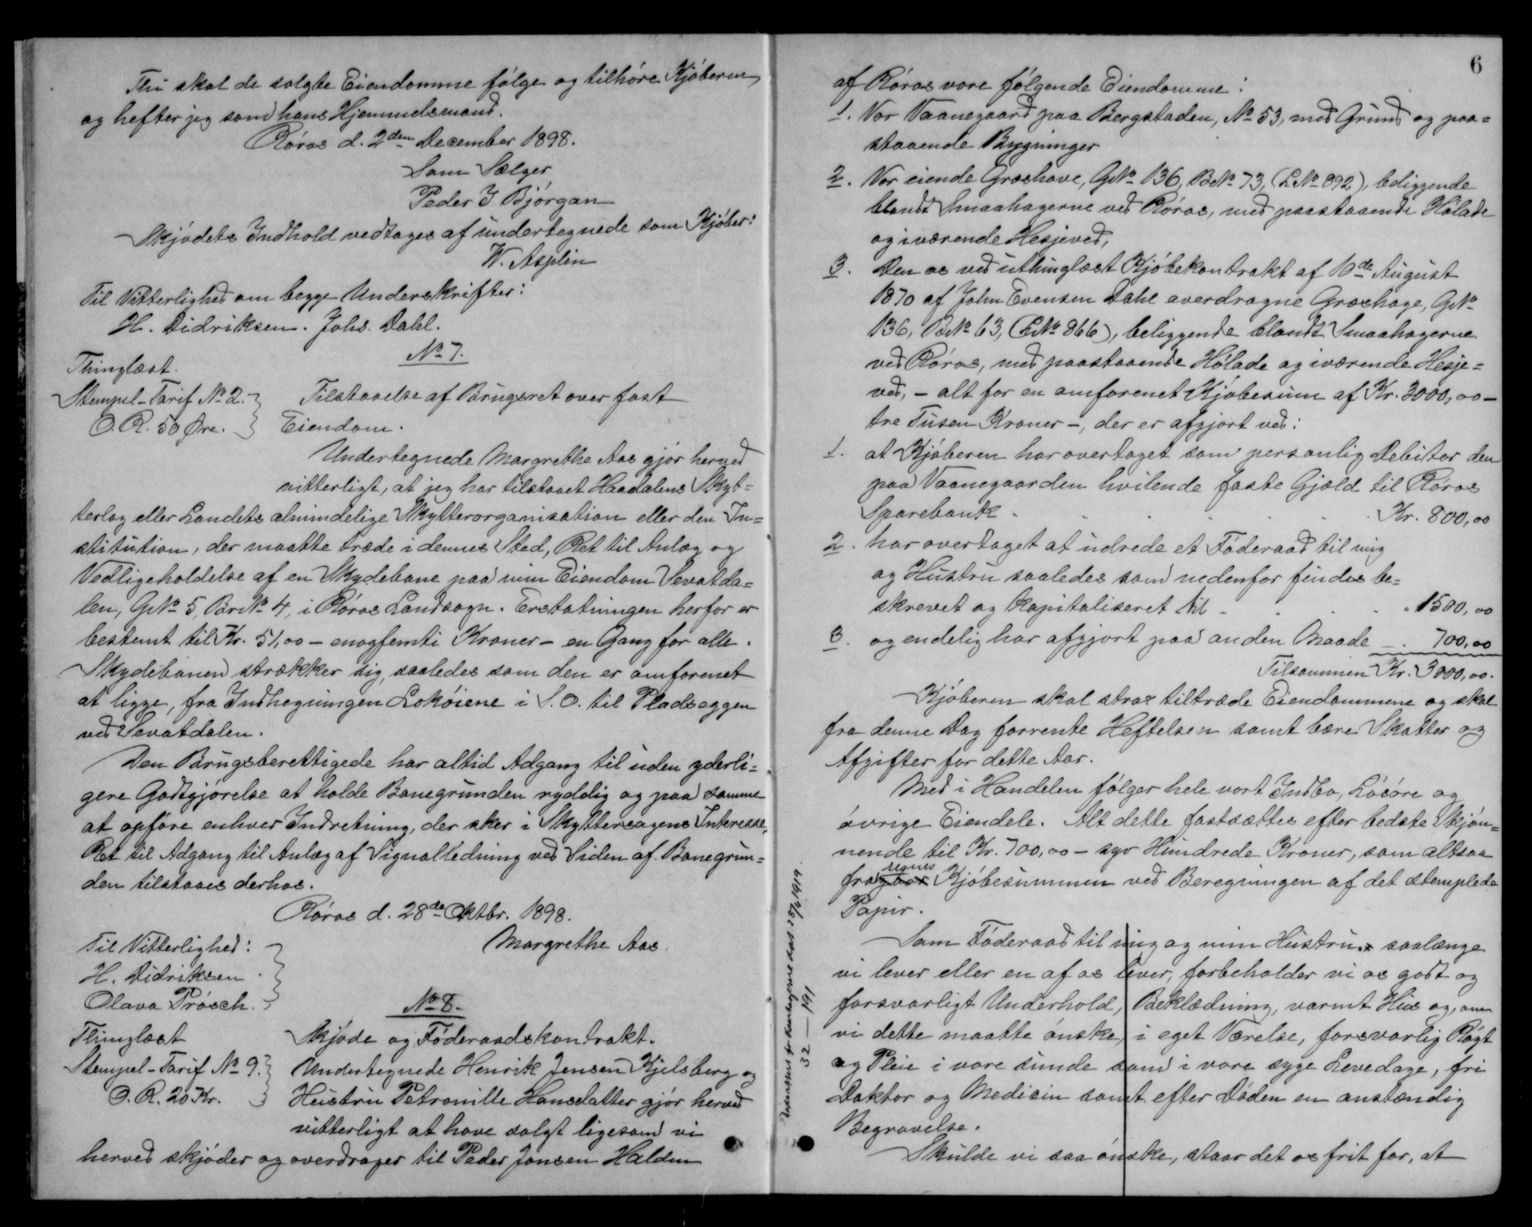 Thi skal de solgte Eiendomme følge og tilhøre Kjøberen,
og hefter jeg som hans Hjemmelsmand.
Røros d. 2den December 1898.
Som Sælger
Peder J Bjørgan
Skjødets Indhold vedtages af undertegnede som Kjøber:
W. Asplin
Til Vitterlighed om begge Underskrifter:
H. Didriksen. Johs. Dahl.
No 7.
Thinglæst.
Stempel-Tarif No 2.
O. R. 50 Øre.
Tilstaaelse af Brugsret over fast
Eiendom.
Undertegnede Margrethe Aas gjør herved
vitterligt, at jeg har tilstaaet Haadalens Skyt=
terlag eller Landets almindelige Skytterorganisation eller den In=
stitution, der maatte træde i dennes Sted, Ret til Anlæg og
Vedligeholdelse af en Skydebane paa min Eiendom Sevatda=
len, GNo 5, BrNo 4, i Røros Landsogn. Erstatningen herfor er
bestemt til Kr. 51,00 - enogfemti Kroner - en Gang for alle.
Skydebanen strækker sig, saaledes som den er omforenet
at ligge, fra Indhegningen Lokøiene i S. O. til Pladseggen
ved Sevatdalen.
Den Brugsberettigede har altid Adgang til uden yderli=
gere Godtgjørelse at holde Banegrunden ryddig og paa samme
at opføre enhver Indretning, der sker i Skyttersagens Interesse,
Ret til Adgang til Anlæg af Signalledning ved Siden af Banegrun=
den tilstaaes derhos.
Røros d. 28de Oktbr. 1898.
Margrethe Aas.
Til Vitterlighed:
H. Didriksen.
Olava Prøsch.
No 8.
Thinglæst
Stempel-Tarif No 9.
O. R. 20 Kr.
Skjøde og Føderaadskontrakt.
Undertegnede Henrik Jensen Kjelsberg og
Hustru Petronille Hansdatter gjør herved
vitterligt at have solgt ligesom vi
herved skjøder og overdrager til Peder Jonsen Halden
6
af Røros vore følgende Eiendomme:
1. Vor Vaanegaard paa Bergstaden, No 53, med Grund og paa=
staaende Bygninger
2. Vor eiende Græshave, GNo 136, BNo 73, (LNo 892), beliggende
blandt Smaahagerne ved Røros, med paastaaende Hølade
og iværende Hesjeved,
3. Den os ved uthinglæst Kjøbekontrakt af 10de August
1870 af John Evensen Dahl overdragne Græshage, GNo
136, BNo 63, (LNo 866), beliggende blandt Smaahagerne
ved Røros, med paastaaende Hølade og iværende Hesje=
ved, - alt for en omforenet Kjøbesum af Kr. 3000,00 -
tre Tusen Kroner -, der er afgjort ved:
1. at Kjøberen har overtaget som personlig Debitor den
paa Vaanegaarden hvilende faste Gjæld til Røros
Sparebank . . . . . Kr. 800,00
2. har overtaget at udrede et Føderaad til mig
og Hustru saaledes som nedenfor findes be=
skrevet og kapitaliseret til . . . . 1500,00
3. og endelig har afgjort paa anden Maade - . 700,00
Tilsammen Kr. 3000,00.
Kjøberen skal strax tiltræde Eiendommene og skal
fra denne Dag forrente Heftelsen samt bære Skatter og
Afgifter for dette Aar.
Med i Handelen følger hele vort Indbo, Løsøre og
øvrige Eiendele. Alt dette fastsættes efter bedste Skjøn=
nende til Kr. 700,00 - syv Hundrede Kroner, som altsaa
fraregnes Kjøbesummen ved Beregningen af det stemplede
Papir.
Som Føderaad til mig og min Hustru saalænge
vi lever eller en af os lever, forbeholder vi os godt og
forsvarligt Underhold, Beklædning, varmt Hus og, om
vi dette maatte ønske, i eget Værelse, forsvarlig Røgt
og Pleie i vore sunde som i vore syge Levedage, fri
Doktor og Medicin samt efter Døden en anstændig
Begravelse.
Skulde vi saa ønske, staar det os frit for, at
32 - 191